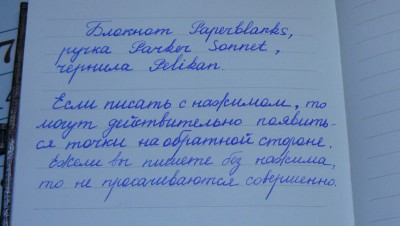 Блокнот Paperblanks,
ручка Parker Sonnet,
чернила Pelikan.
Если писать с нажимом, то
могут действительно появить-
ся точки на обратной стороне.
Ежели вы пишете без нажима,
то не просачиваются совершенно.